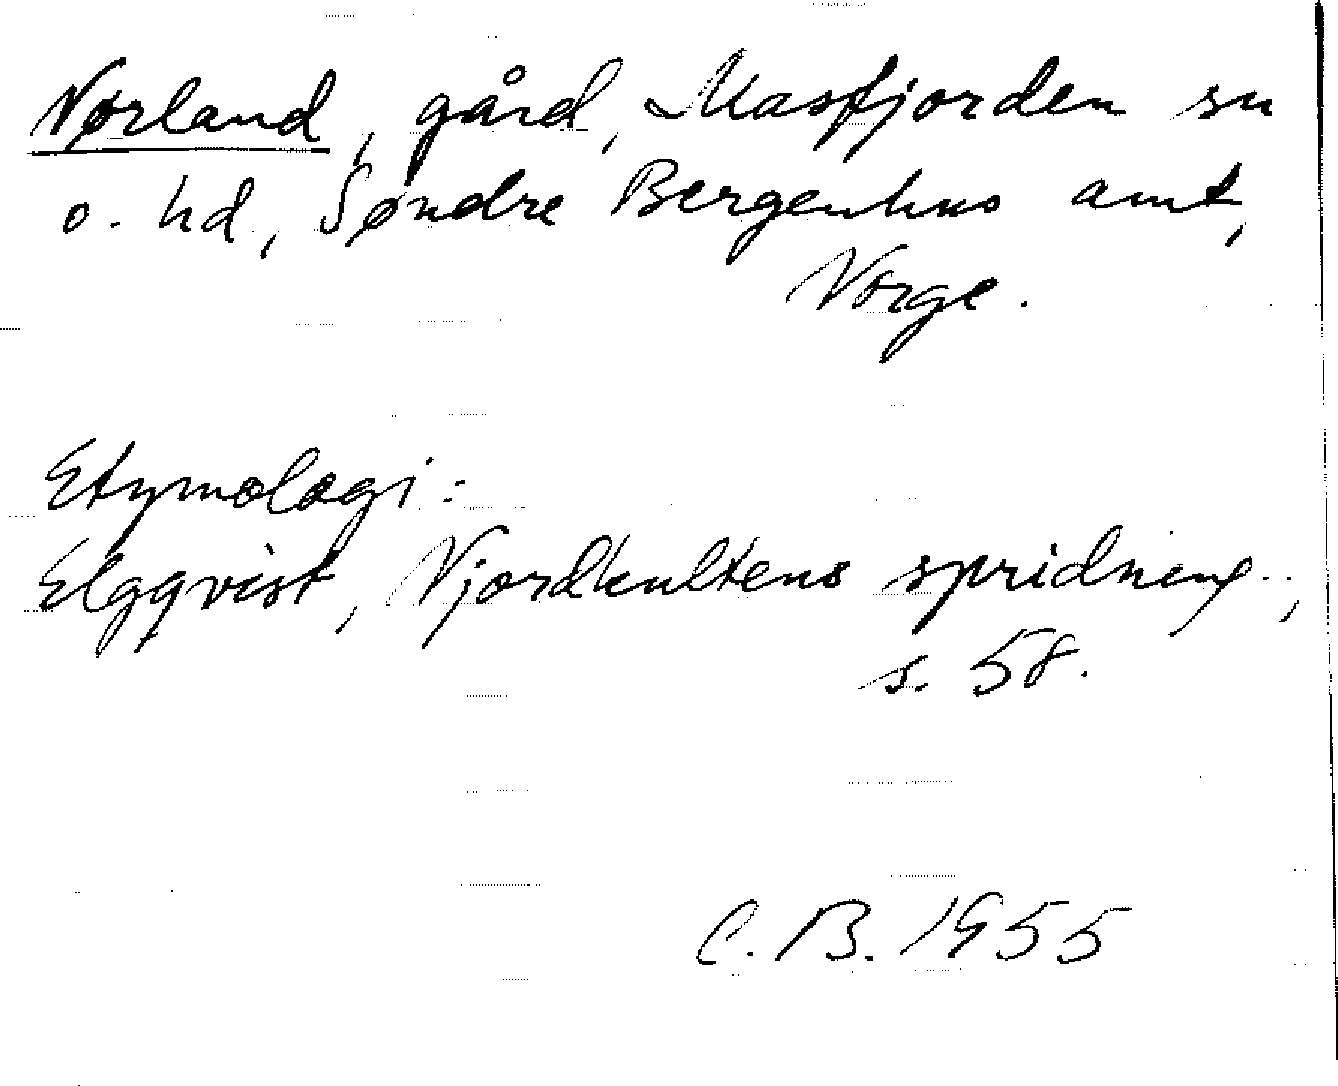 Nørland, gård, Masfjorden sn
o. hd, Søndre Bergenhus amt,
Norge.
Etymologi:
Elgqvist, Njordkultens spridning,
s. 58.
C. B. 1955